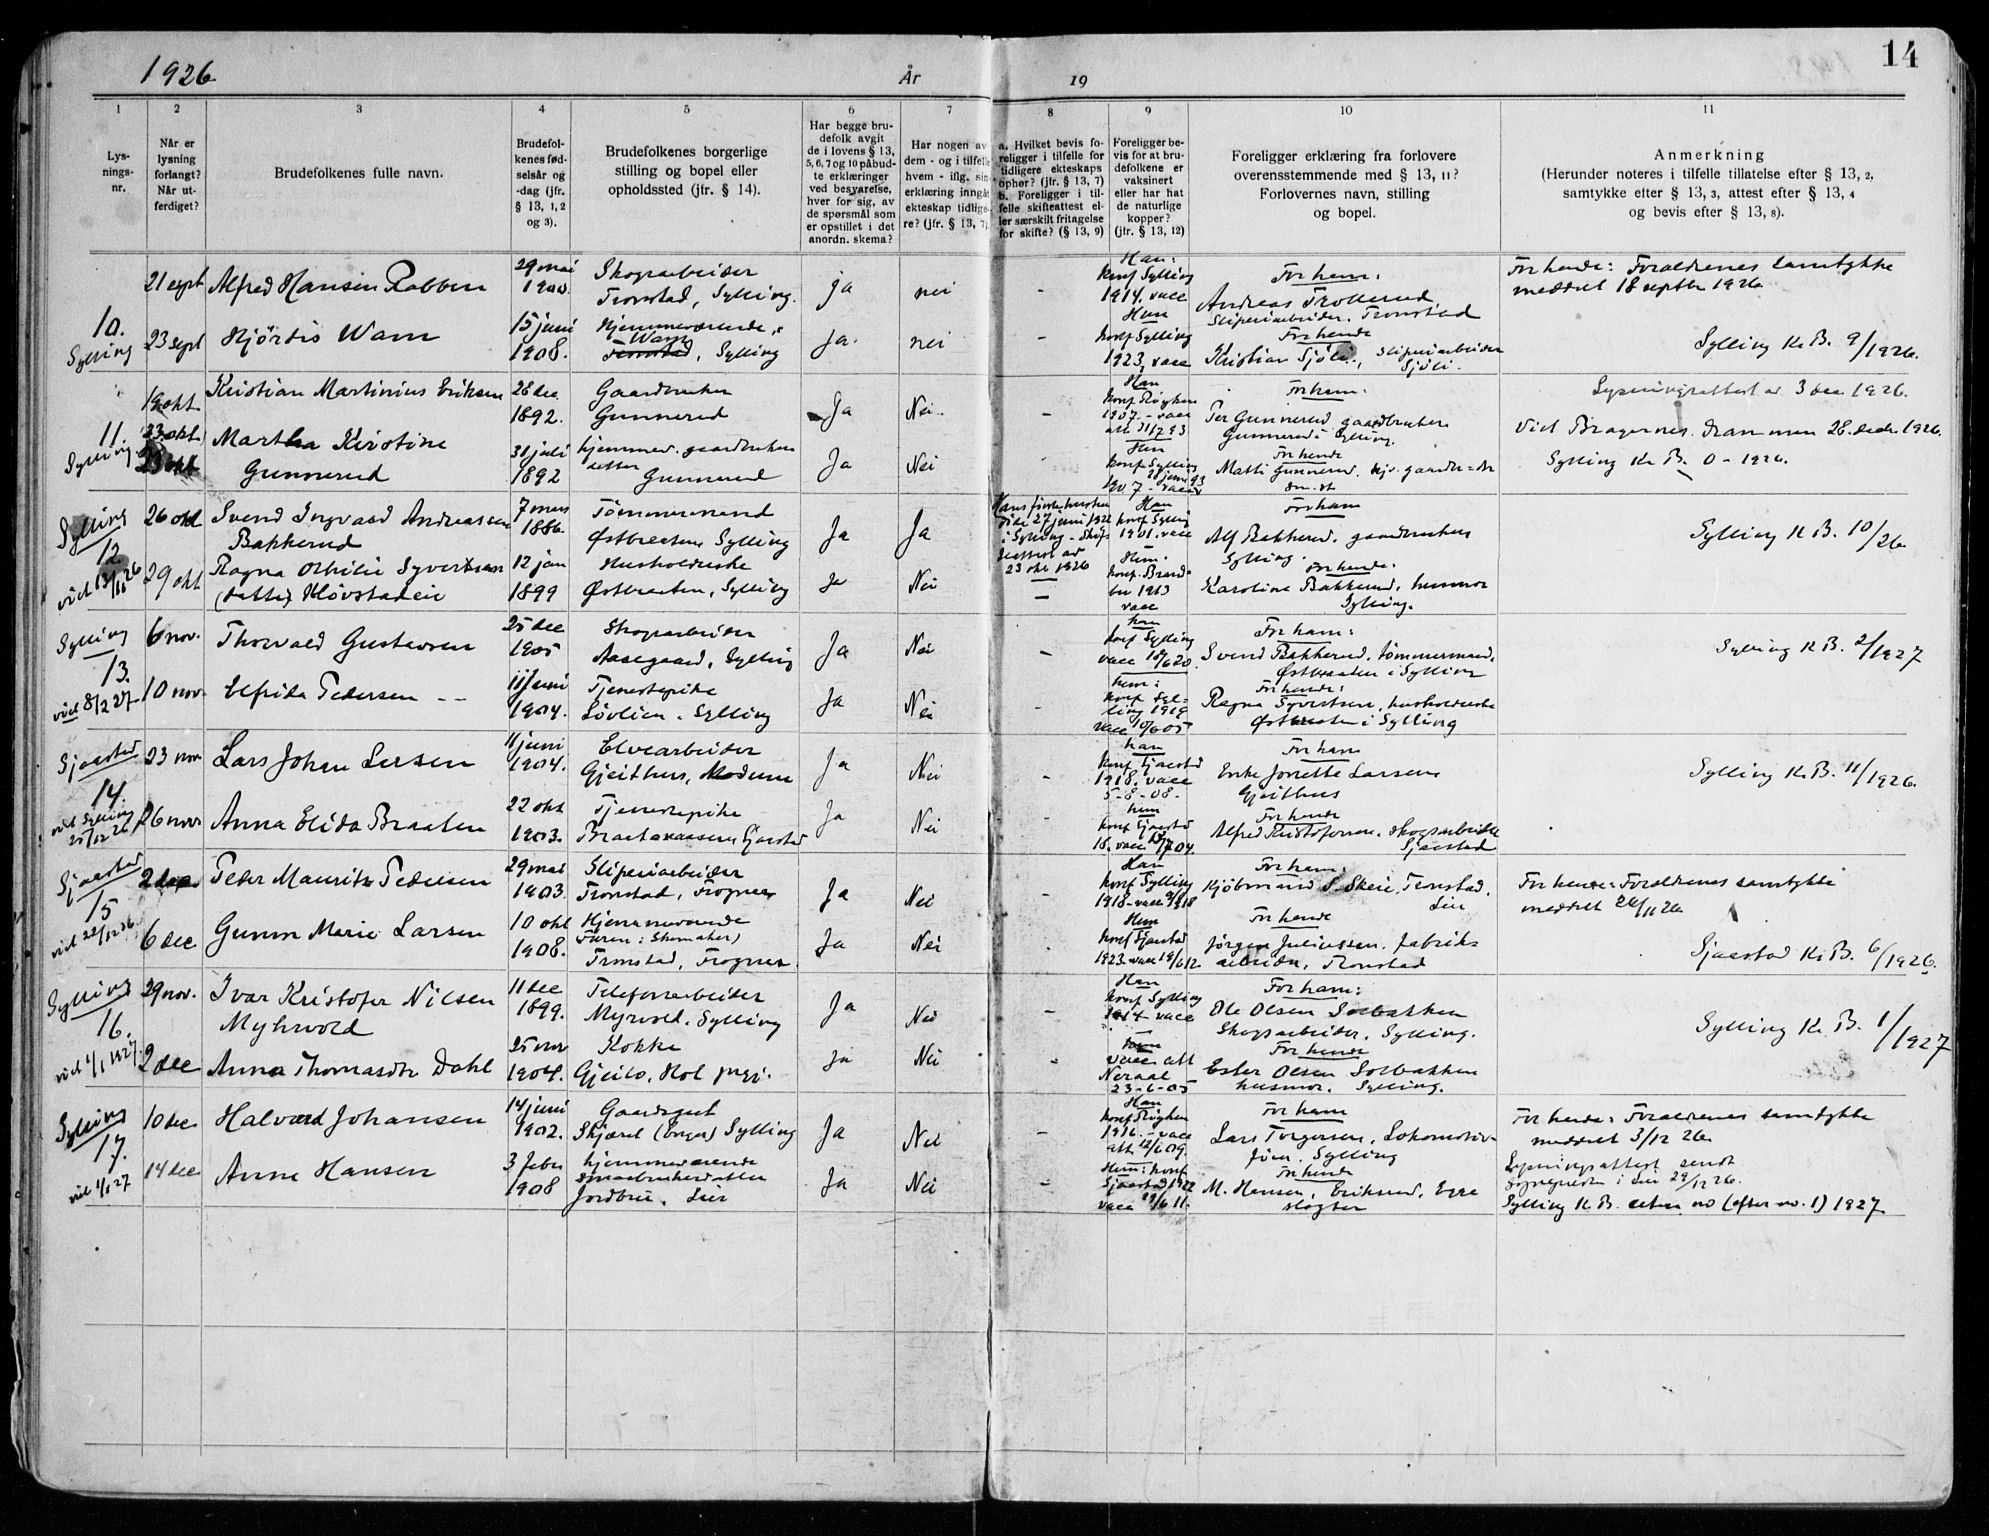 1926
År
19
14
1
2
3
4
5
6
7
8
9
10
11
Lys-
nings-
nr.
Når er
lysning
forlangt?
Når ut-
ferdiget?
Brudefolkenes fulle navn.
Brudefol-
kenes fød-
selsår og
-dag (jfr.
§ 13, 1, 2
og 3).
Brudefolkenes borgerlige
stilling og bopel eller
opholdssted (jfr. § 14).
Har begge bru-
defolk avgit
de i lovens § 13,
5, 6, 7 og 10 påbud-
te erklæringer
ved besvarelse,
hver for sig, av
de spørsmål som
er opstillet i det
anordn. skema?
Har nogen av
dem - og i tilfelle
hvem - iflg. sin
erklæring inngått
ekteskap tidlige-
re? (jfr. § 13, 7)
a. Hvilket bevis fo-
religger i tilfelle for
tidligere ekteskaps
ophør? (jfr. § 13, 7)
b. Foreligger i til-
felle skifteattest el-
ler særskilt fritagelse
for skifte? (§ 13, 9)
Foreligger be-
vis for at bru-
defolkene er
vaksinert
eller har hat
de naturlige
kopper?
(jfr. § 13, 12)
Foreligger erklæring fra forlovere
overensstemmende med § 13, 11?
Forlovernes navn, stilling
og bopel.
Anmerkning
(Herunder noteres i tilfelle tillatelse efter § 13, 2,
samtykke efter § 13, 3, attest efter § 13, 4
og bevis efter § 13, 8).
10.
Sylling
21 sept
Alfred Hansen Rabben
29 mai
1900.
Skogsarbeider
Tronstad, Sylling.
ja
nei
-
Han:
konf Sylling
1914. vacc
For ham:
Andreas Trollerud
Sliperiarbeider. Tronstad
For hende: Forældrenes samtykke
meddelt 18 septbr 1926
23 sept
Hjørdis Wam
15 juni
1908.
Hjemmeværende,
Wam
Tronstad, Sylling
ja.
nei
-
Hun
konf Sylling
1923, vacc
For hende
Kristian Sjøli, Sliperiarbeider
Sjøli.
Sylling K. B. 9/1926.
11.
Sylling
19 okt
Kristian Martinius Eriksen
28 dec
1892.
Gaardbruker
Gunnerud
Ja
Nei
-
Han
konf Røyken
1907. - vacc
att 21/7 93
For ham:
Per Gunnerud gaardbruker
Gunnerud i Sylling.
Lysningsattest av 3 dec 1926.
23 okt
Martha Kirstine
Gunnerud
31 juli
1892
hjemmev. gaardbruker
datter
Gunnerud
Ja
Nei
-
Hun
konf Sylling
1907 - vacc
For hende
Matti Gunnerud.
Viet Bragernes. Drammen 28. decbr. 1926.
Sylling K. B. 0 - 1926.
Sylling
12
viet 13/11 26
26 okt
Svend Ingvald Andreassen
Bakkerud
7 mars
1886.
Tømmermand
Østbraaten Sylling
Ja
Ja
Hans første hustru
døde 27 juni 1922
i Sylling - Skifte
attest av
23 okt 1926
Han
konf Sylling
1901. vacc
For ham
Alf Bakkerud, gaardbruker
Sylling.
Sylling K. B. 10/26
29 okt
Ragna Othilie Syvertsen
(datter) Kløvstadeie
12 jan
1899
Husholderske
Østbraaten, Sylling
ja
Nei
-
Hun.
konf. Brand-
bu 1913
vacc
For hende.
Karoline Bakkerud, husmor
Sylling.
Sylling
13.
viet 8/2 27
6 nov.
Thorvald Gustavsen
25 dec
1905
Skogsarbeider
Aasegaard, Sylling
Ja
Nei
-
han
konf Sylling
vacc 18/6 20.
For ham:
Svend Bakkerud, tømmermand,
Østbraaten i Sylling
Sylling K B. 2/1927
10 nov.
Elfrida Pedersen - -
11 juni
1904.
Tjenestepike
Løvlien. Sylling
Ja
Nei
-
hun:
konf Syl-
ling 1919
vacc 10/6 05
For hende:
Ragna Syvertsen, husholderske
Østbraaten i Sylling
Sjaastad
14.
viet Sylling
25/12 26
23 nov
Lars Johan Larsen
11 juni
1904.
Elvearbeider
Gjeithus, Modum
Ja
Nei
-
han
konf Sjaastad
1918. vacc
5-8-08.
For ham
Enke Jonette Larsen
Gjeithus
Sylling K. B. 11/1926.
26 nov
Anna Elida Braaten
22 okt
1903.
Tjenestepike
Braataraasen Sjaastad
Ja
Nei
-
hun
konf Sjaastad
18. vacc 13/7 04.
For hende
Alfred Kristofersen. skogsarbeider
Sjaastad
Sjaastad
15
viet 22/12 26
2 dec
Peder Mauritz Pedersen
29 mai
1903.
Sliperiarbeider
Tronstad, Frogner
Ja
Nei
-
Han
konf Sylling
1918 - vacc
For ham:
Kjøbmand S. Skeie, Tronstad.
Lier
For hende: Forældrenes samtykke
meddelt 26/11 26
6 dec
Gunvor Marie Larsen
10 okt
1908.
Hjemmeværende
(Faren: Skomaker)
Tronstad, Frogner.
Ja
Nei
-
Hun
konf Sjaastad
1923. vacc 19/6 12.
For hende
Jørgen Juliussen. fabrik-
arbeider, Tronstad
Sjaastad K. B. 6/1926.
Sylling
16.
viet 1/1 1927.
29 nov.
Ivar Kristofer Nilsen
Myhrvold
11 dec
1899.
Telefonarbeider
Myrvold. Sylling
Ja
Nei
-
Han
konf Sylling
1914 vacc
For ham:
Ole Olsen Solbakken
Skogsarbeider, Sylling.
Sylling K. B. 1/1927
2 dec
Anna Thomasdtr Dahl
25 nov
1904.
Kokke
Gjeilo. Hol prgj.
ja
Nei
-
vacc att
Neraal
23-6-05
For hende
Ester Olsen Solbakken
husmor. Sylling.
Sylling
17.
viet 1/1 27
10 dec
Halvard Johansen
14 juni
1902.
Gaardsgut
Skjæret (Enger) Sylling
Ja
Nei
-
Han
konf Røyken
1916. - vacc
att 12/6 09.
For ham
Lars Torgersen, Lokomotiv-
Sylling
For hende: Forældrenes samtykke
meddelt 3/12 26
14 dec
Anne Hansen
3 febr
1908
hjemmeværende
smaabrukerdatter
Jordbru. Lier
Ja
Nei
-
Hun: konf
Sjaastad 1922
vacc 29/6 11.
For hende
M. Hansen, Eriksrud, Egge
slagter
Lysningsattest sendt
sogneprest i Lier 29/12 26.
Sylling K. B. uten no (efter no. 1) 1927